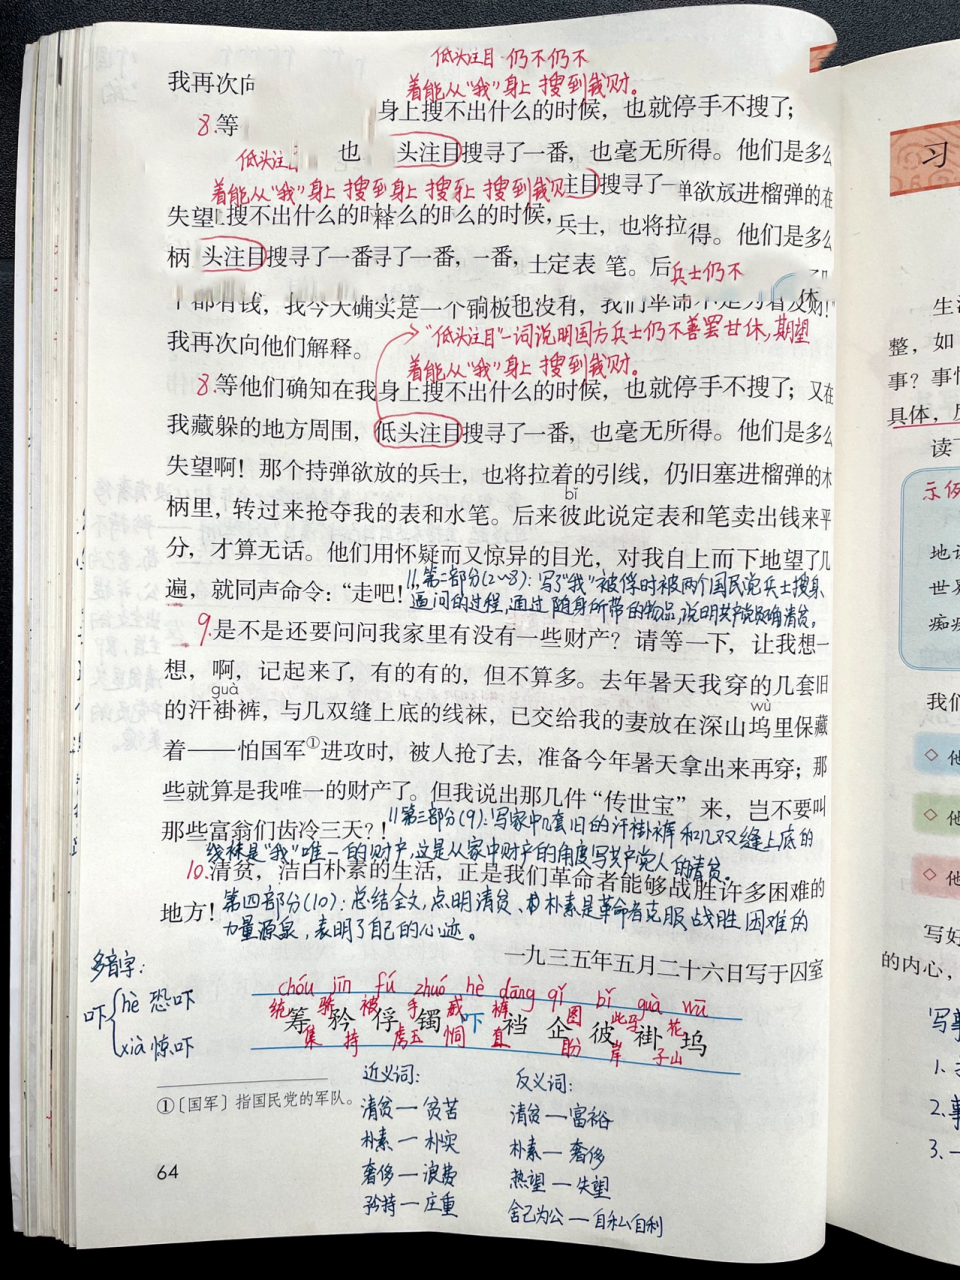 低头注目·仍不仍不
我再次向
着能从“我”身上 搜到我财。
身上搜不出什么的时候，也就停手不搜了；
8.等
低头注
也 头注目搜寻了一番，也毫无所得。他们是多么
着能从“我”身上 搜到身上 搜 上 搜到我
主目搜寻了一 单欲放进榴弹的在
失望 搜不出什么的时释么的时么的时候，兵士，也将拉得。他们是多么
柄 头注目搜寻了一番寻了一番，一番，士定表 笔。后兵士仍不
休
个都有钱，我今天确实是一个铜板也没有，我们
我再次向他们解释。
“低头注目”一词说明国方兵士仍不善罢甘休，期望
着能从“我”身上 搜到我财。
8.等他们确知在我身上搜不出什么的时候，也就停手不搜了；又在
我藏躲的地方周围，低头注目搜寻了一番，也毫无所得。他们是多么
失望啊！那个持弹欲放的兵士，也将拉着的引线，仍旧塞进榴弹的木
bǐ
柄里，转过来抢夺我的表和水笔。后来彼此说定表和笔卖出钱来平
分，才算无话。他们用怀疑而又惊异的目光，对我自上而下地望了几
遍，就同声命令：“走吧！”
//第二部分(2~8)：写了“我”被俘时被两个国民党兵士搜身
逼问的过程，通过随身所带的物品，说明共产党员的清贫。
9.是不是还要问问我家里有没有一些财产？请等一下，让我想一
想，啊，记起来了，有的有的，但不算多。去年暑天我穿的几套旧
guà wù
的汗褂裤，与几双缝上底的线袜，已交给我的妻放在深山坞里保藏
着——怕国军①进攻时，被人抢了去，准备今年暑天拿出来再穿；那
些就算是我唯一的财产了。但我说出那几件“传世宝”来，岂不要叫
那些富翁们齿冷三天？！
//第三部分(9)：写家中几套旧的汗褂裤和几双缝上底的
线袜是“我”唯一的财产，这是从家中财产的角度写共产党人的清贫。
10.清贫，洁白朴素的生活，正是我们革命者能够战胜许多困难的
地方！
第四部分(10)：总结全文，点明清贫、朴素是革命者克服、战胜困难的
力量源泉，表明了自己的心迹。
一九三五年五月二十六日写于囚室
多音字：
吓 hè 恐吓
xià 惊吓
chóu jīn fú zhuó hè dāng qǐ bǐ guà wū
统 骄 被 手 威 裤 图 此 马 花
筹 矜 俘 镯 吓 裆 企 彼 褂 坞
集 持 虏 玉 恫 直 盼 岸 子 山
近义词：
清贫—贫苦
朴素—朴实
奢侈—浪费
矜持—庄重
反义词：
清贫—富裕
朴素—奢侈
热望—失望
舍己为公—自私自利
①〔国军〕指国民党的军队。
64
习
生活
整，如
事？事情
具体，反
读
示例
地
世界
痴
我们
◇他
◇他
◇他
写好
的内心，
写事
1.
2.事
3.